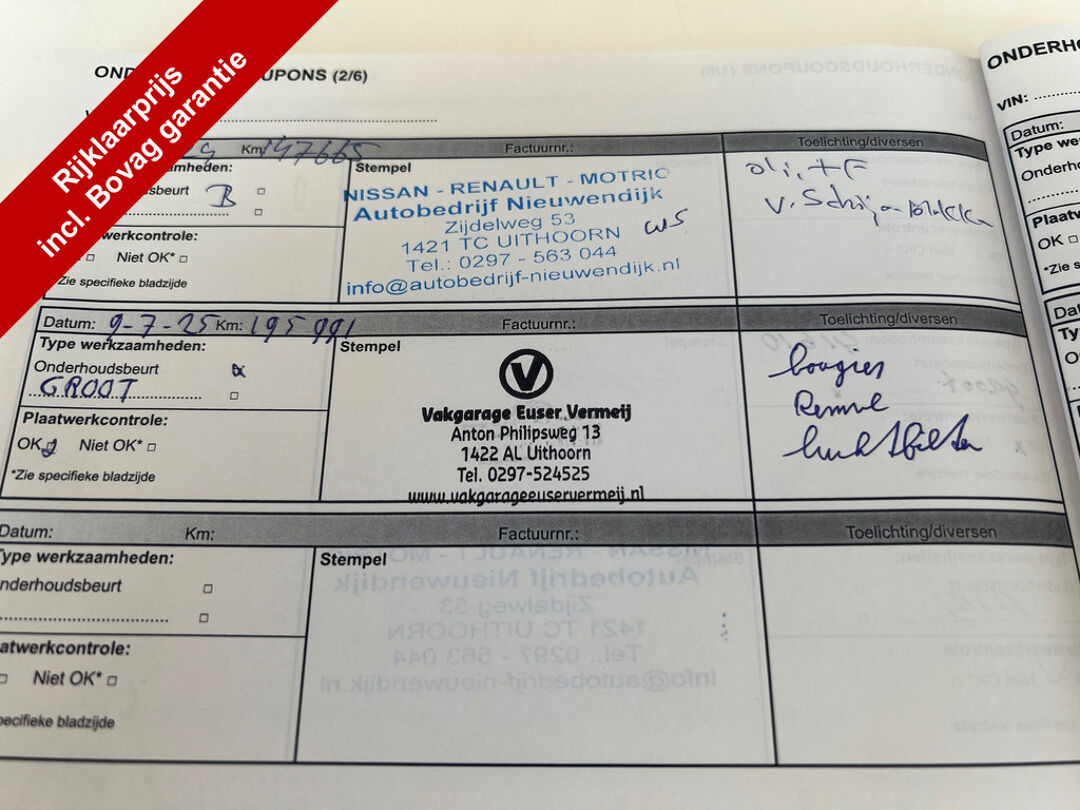 Rijklaarprijs
incl. Bovag garantie
UPONS (2/6)
Km: 147665 Factuurnr.: Toelichting/diversen
B
Stempel
NISSAN - RENAULT - MOTRIO
Autobedrijf Nieuwendijk
Zijdelweg 53
1421 TC UITHOORN
Tel.: 0297 - 563 044
info@autobedrijf-nieuwendijk.nl
Niet OK*
Zie specifieke bladzijde
Datum: 9-7-25 Km: 195991 Factuurnr.: Toelichting/diversen
Type werkzaamheden:
Onderhoudsbeurt
GROOT
Plaatwerkcontrole:
OK Niet OK*
*Zie specifieke bladzijde
Stempel
V
Vakgarage Euser Vermeij
Anton Philipsweg 13
1422 AL Uithoorn
Tel. 0297-524525
www.vakgarageeuservermeij.nl
bougies
Remvl
luchtfilter
Datum: Km: Factuurnr.: Toelichting/diversen
Type werkzaamheden:
Onderhoudsbeurt
Stempel
Niet OK*
ONDERHO
VIN:
Datum:
Type we
Onderho
Plaatw
OK
*Zie s